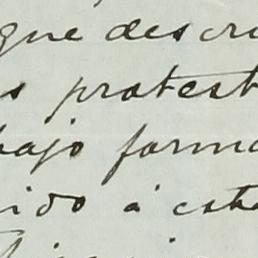 que descri
s protest
bajo forma
ido á esta